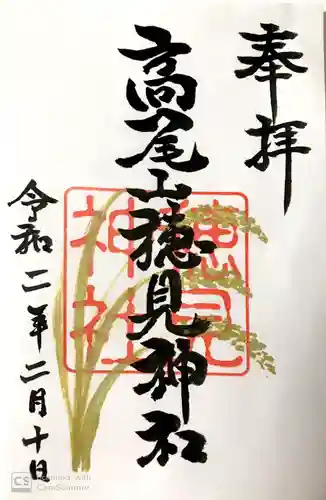 奉拝
高尾山穂見神社
穂見神社
令和二年二月十日
CS Scanned with CamScanner